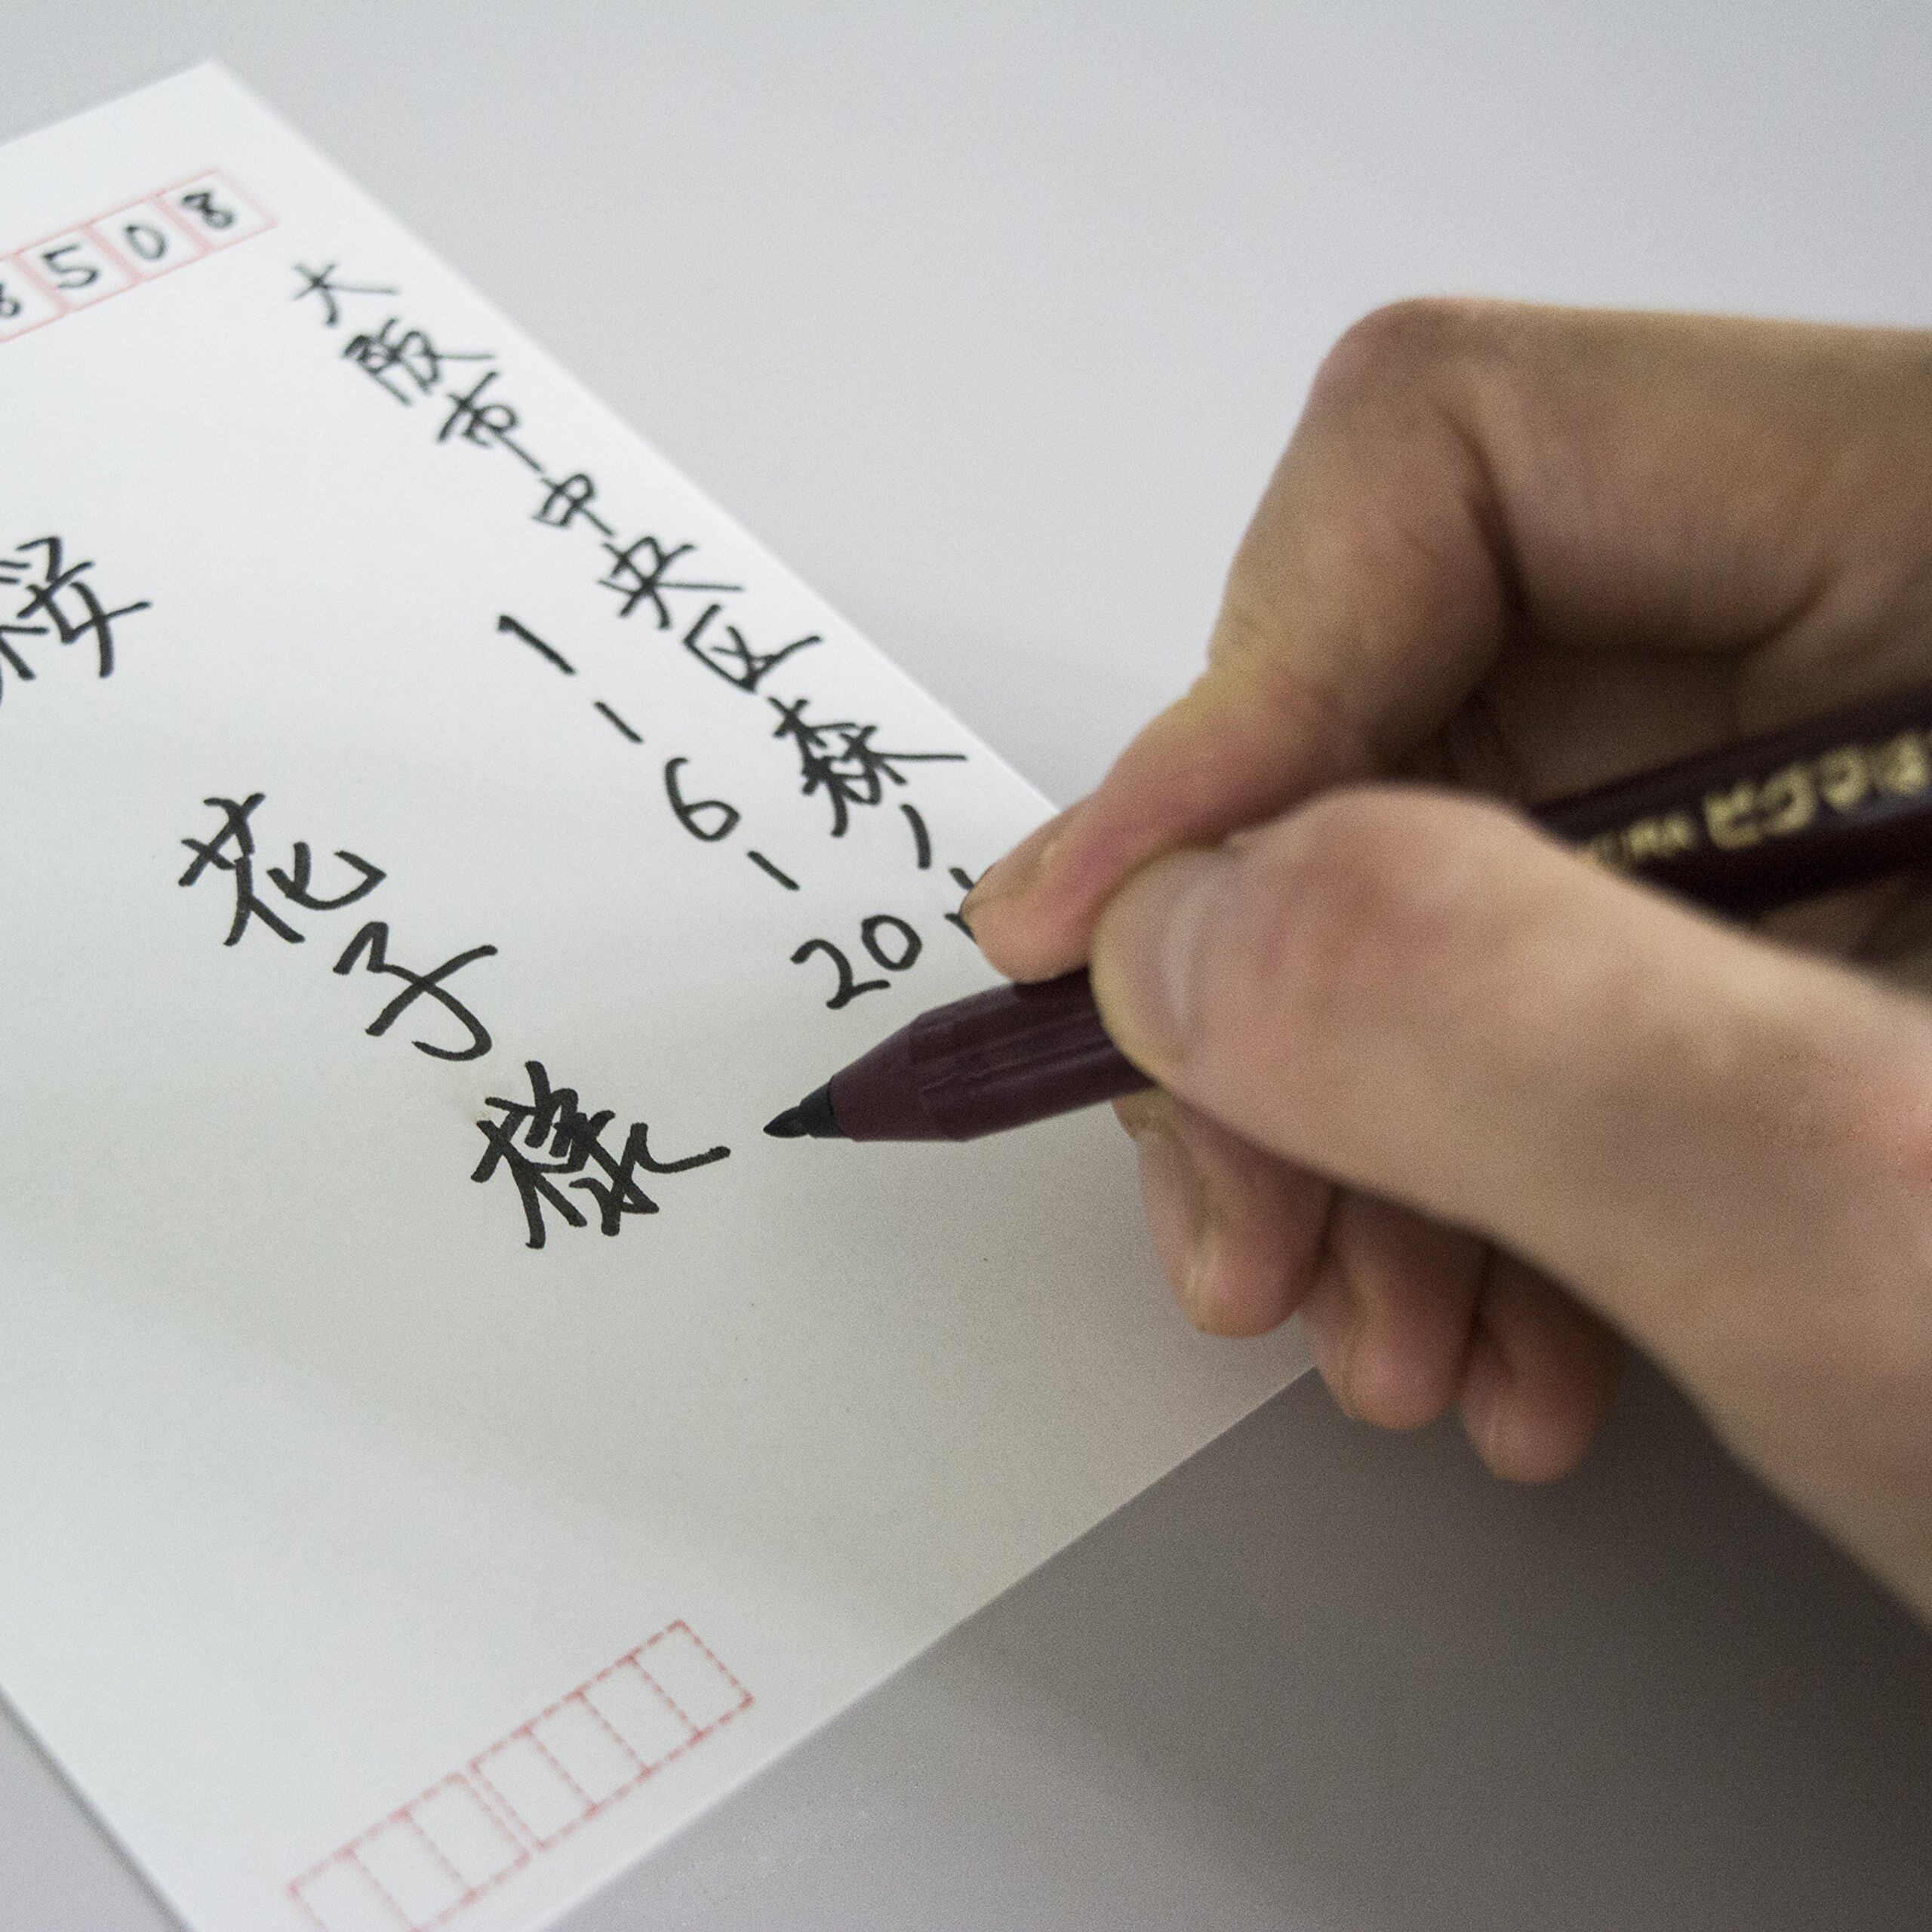 8508
大阪市中央区森ノ
1-6-20
桜
花子様